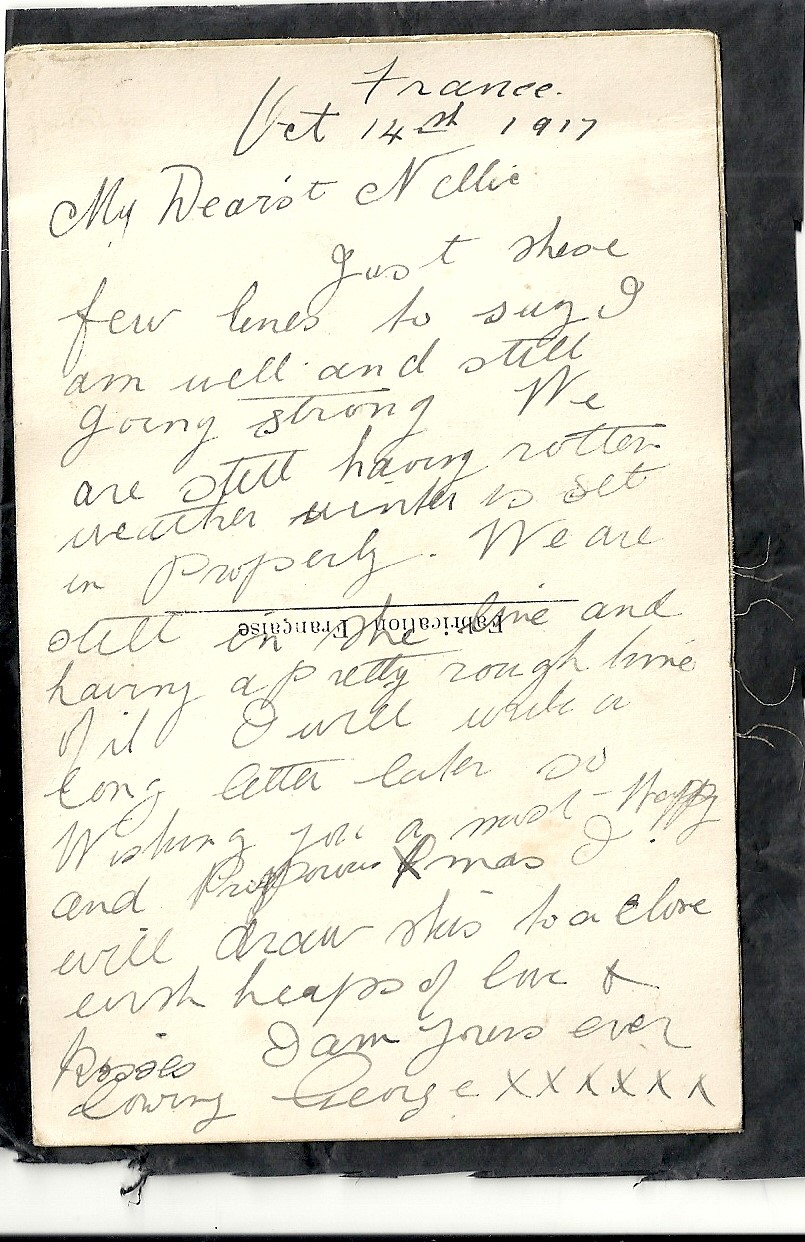 France.
Oct 14st 1917
My Dear'st Nellie
Just these
few lines to say I
am well and still
going strong We
are still having rotten
weather winter is set
in Properly. We are
Fabrication Française
still in the line and
having a pretty rough time
of it I will write a
long letter later so
Wishing you a most Happy
and Prosperous Xmas I
will draw this to a close
with heaps of love &
kisses I am yours ever
Loving George XXXXXX